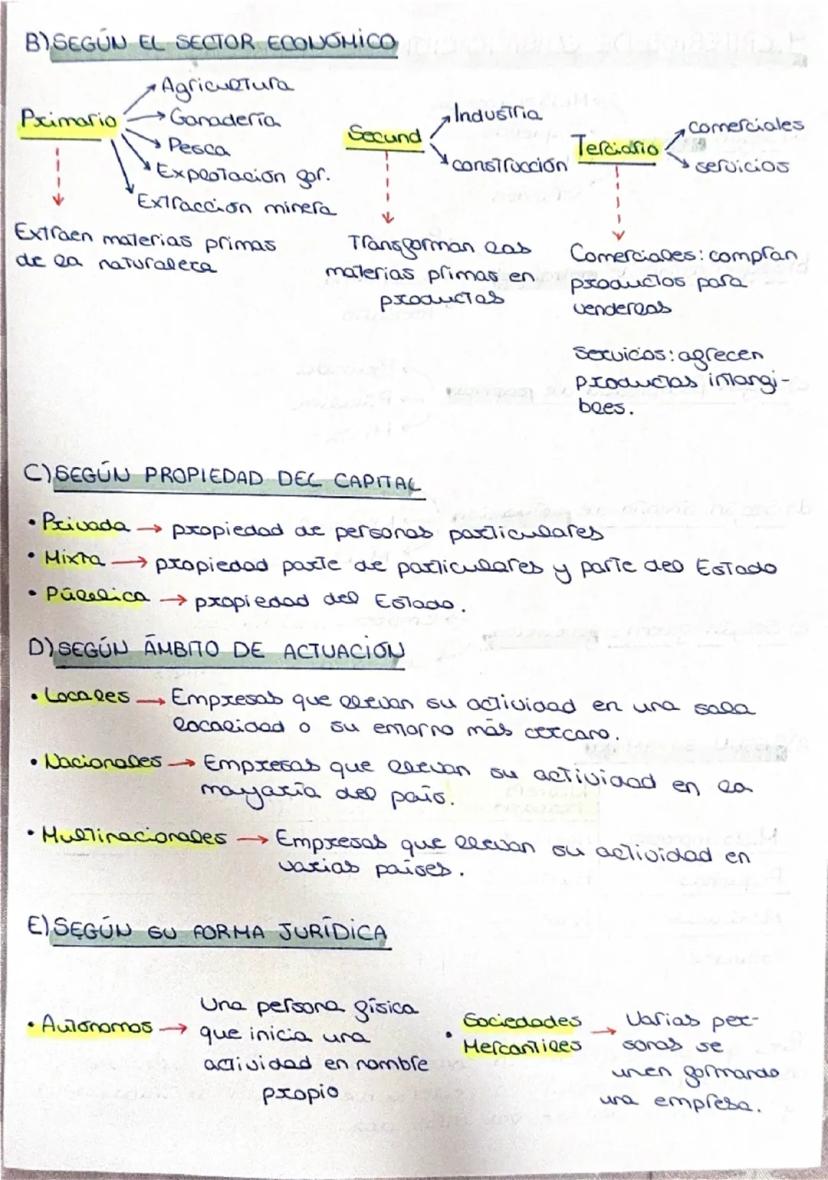 B) SEGÚN EL SECTOR ECONÓMICO
Primario
Agricultura
Ganadería
Pesca
Explotación for.
Extracción minera
Extraen materias primas
de la naturaleza
Secund
Industria
construcción
Transforman las
materias primas en
productos
Terciario
comerciales
servicios
Comerciales: compran
productos para
venderlos
Servicios: ofrecen
productos intangi-
bles.
C) SEGÚN PROPIEDAD DEL CAPITAL
• Privada → propiedad de personas particulares
• Mixta → propiedad parte de particulares y parte del Estado
• Pública → propiedad del Estado.
D) SEGÚN ÁMBITO DE ACTUACIÓN
• Locales → Empresas que llevan su actividad en una sola
localidad o su entorno más cercano.
• Nacionales → Empresas que llevan su actividad en la
mayoría del país.
• Multinacionales → Empresas que llevan su actividad en
varios países.
E) SEGÚN SU FORMA JURÍDICA
• Autónomos → Una persona física
que inicia una
actividad en nombre
propio
• Sociedades
Mercantiles → Varias per-
sonas se
unen formando
una empresa.